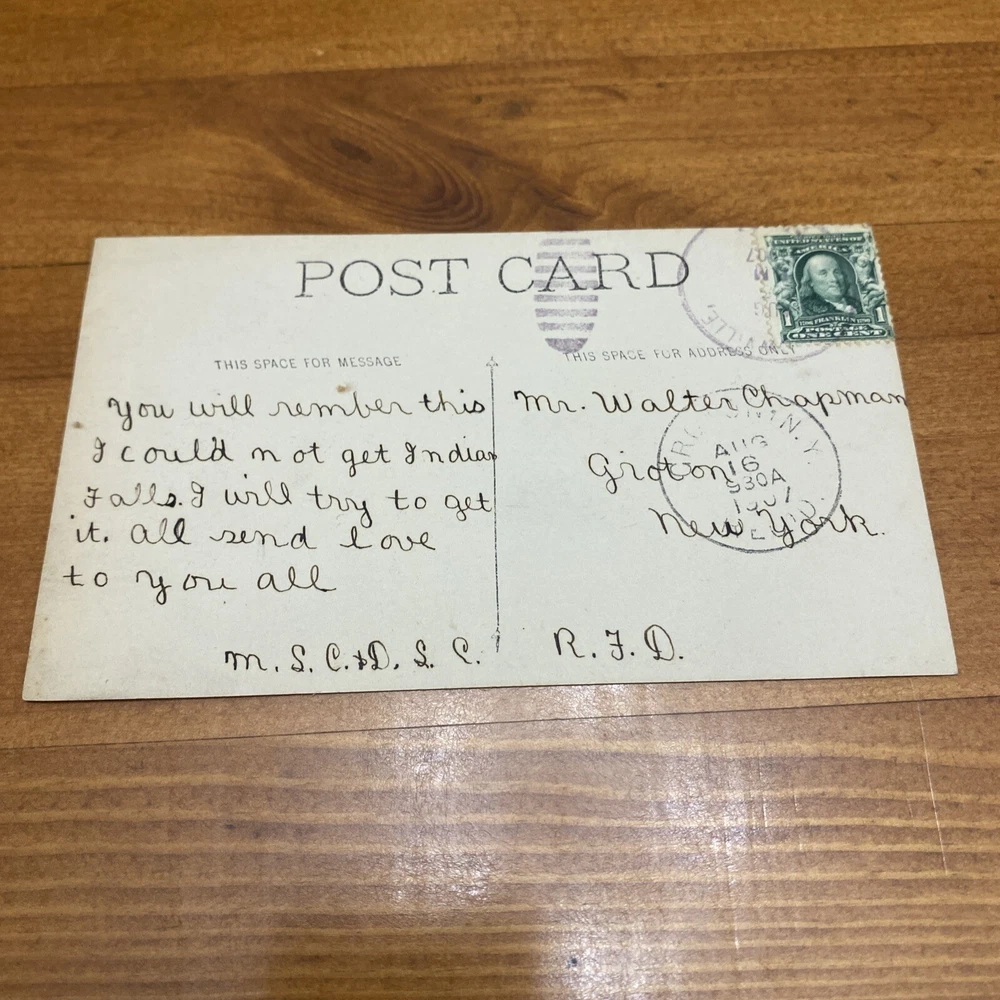 POST CARD
UNITED STATES OF
AMERICA
1 FRANKLIN 1
POSTAGE
ONE CENT
VILLE
THIS SPACE FOR MESSAGE
THIS SPACE FOR ADDRESS ONLY
You will rember this
I could not get Indian
Falls. I will try to get
it. All send love
to you all
M. S. C. & D. S. C.
Mr. Walter Chapman
Groton
New York.
R. F. D.
N.Y.
AUG
16
930A
1907